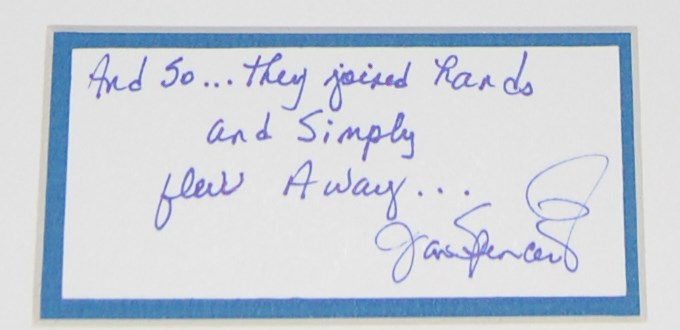 And So... they joined hands
and Simply
flew Away...
Jan Spencer